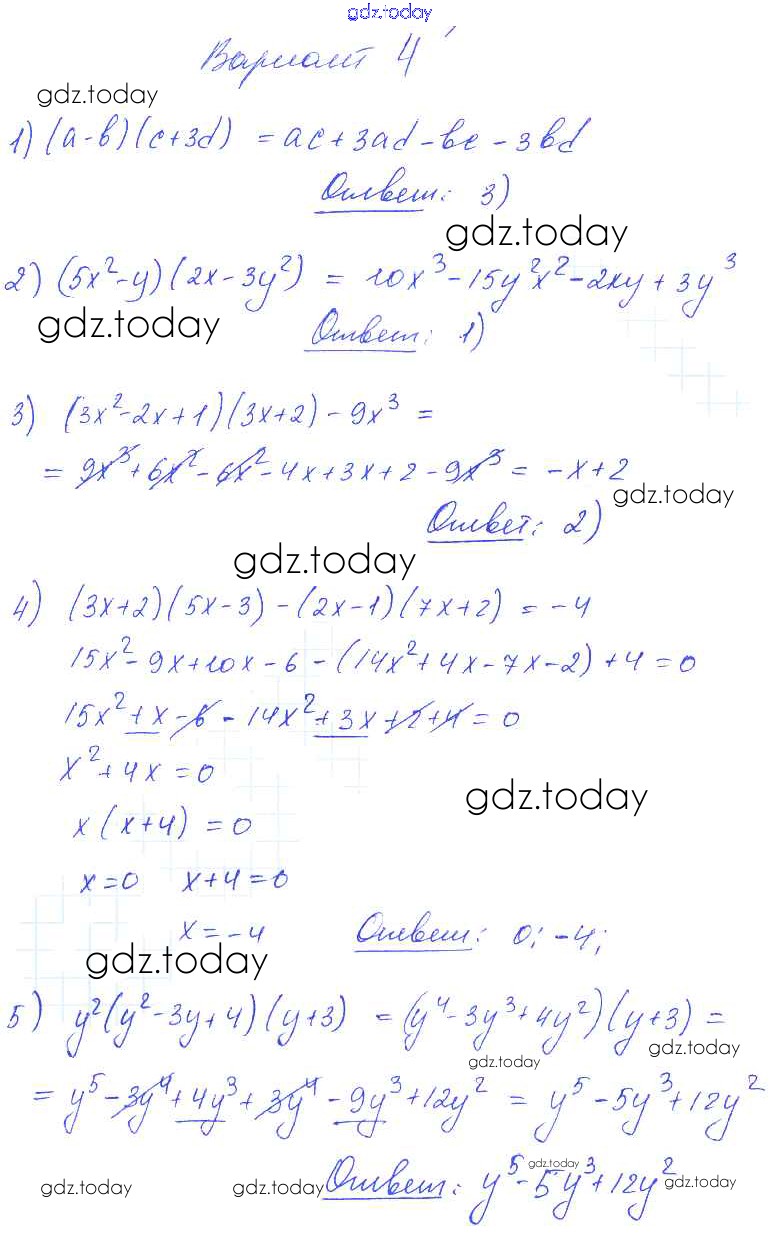 gdz.today
Вариант 4
gdz.today
1) (a-b)(c+3d) = ac+3ad-bc-3bd
Ответ: 3)
gdz.today
2) (5x²-y)(2x-3y²) = 10x³-15y²x²-2xy+3y³
gdz.today
Ответ: 1)
3) (3x²-2x+1)(3x+2)-9x³ =
= 9x³+6x²-6x²-4x+3x+2-9x³ = -x+2
gdz.today
Ответ: 2)
gdz.today
4) (3x+2)(5x-3)-(2x-1)(7x+2) = -4
15x²-9x+10x-6-(14x²+4x-7x-2)+4=0
15x²+x-6-14x²+3x+2+4=0
x²+4x=0
gdz.today
x(x+4)=0
x=0 x+4=0
x=-4 Ответ: 0; -4;
gdz.today
5) y²(y²-3y+4)(y+3) = (y⁴-3y³+4y²)(y+3) =
gdz.today
gdz.today
= y⁵-3y⁴+4y³+3y⁴-9y³+12y² = y⁵-5y³+12y²
gdz.today
Ответ: y⁵-5y³+12y²
gdz.today
gdz.today
gdz.today